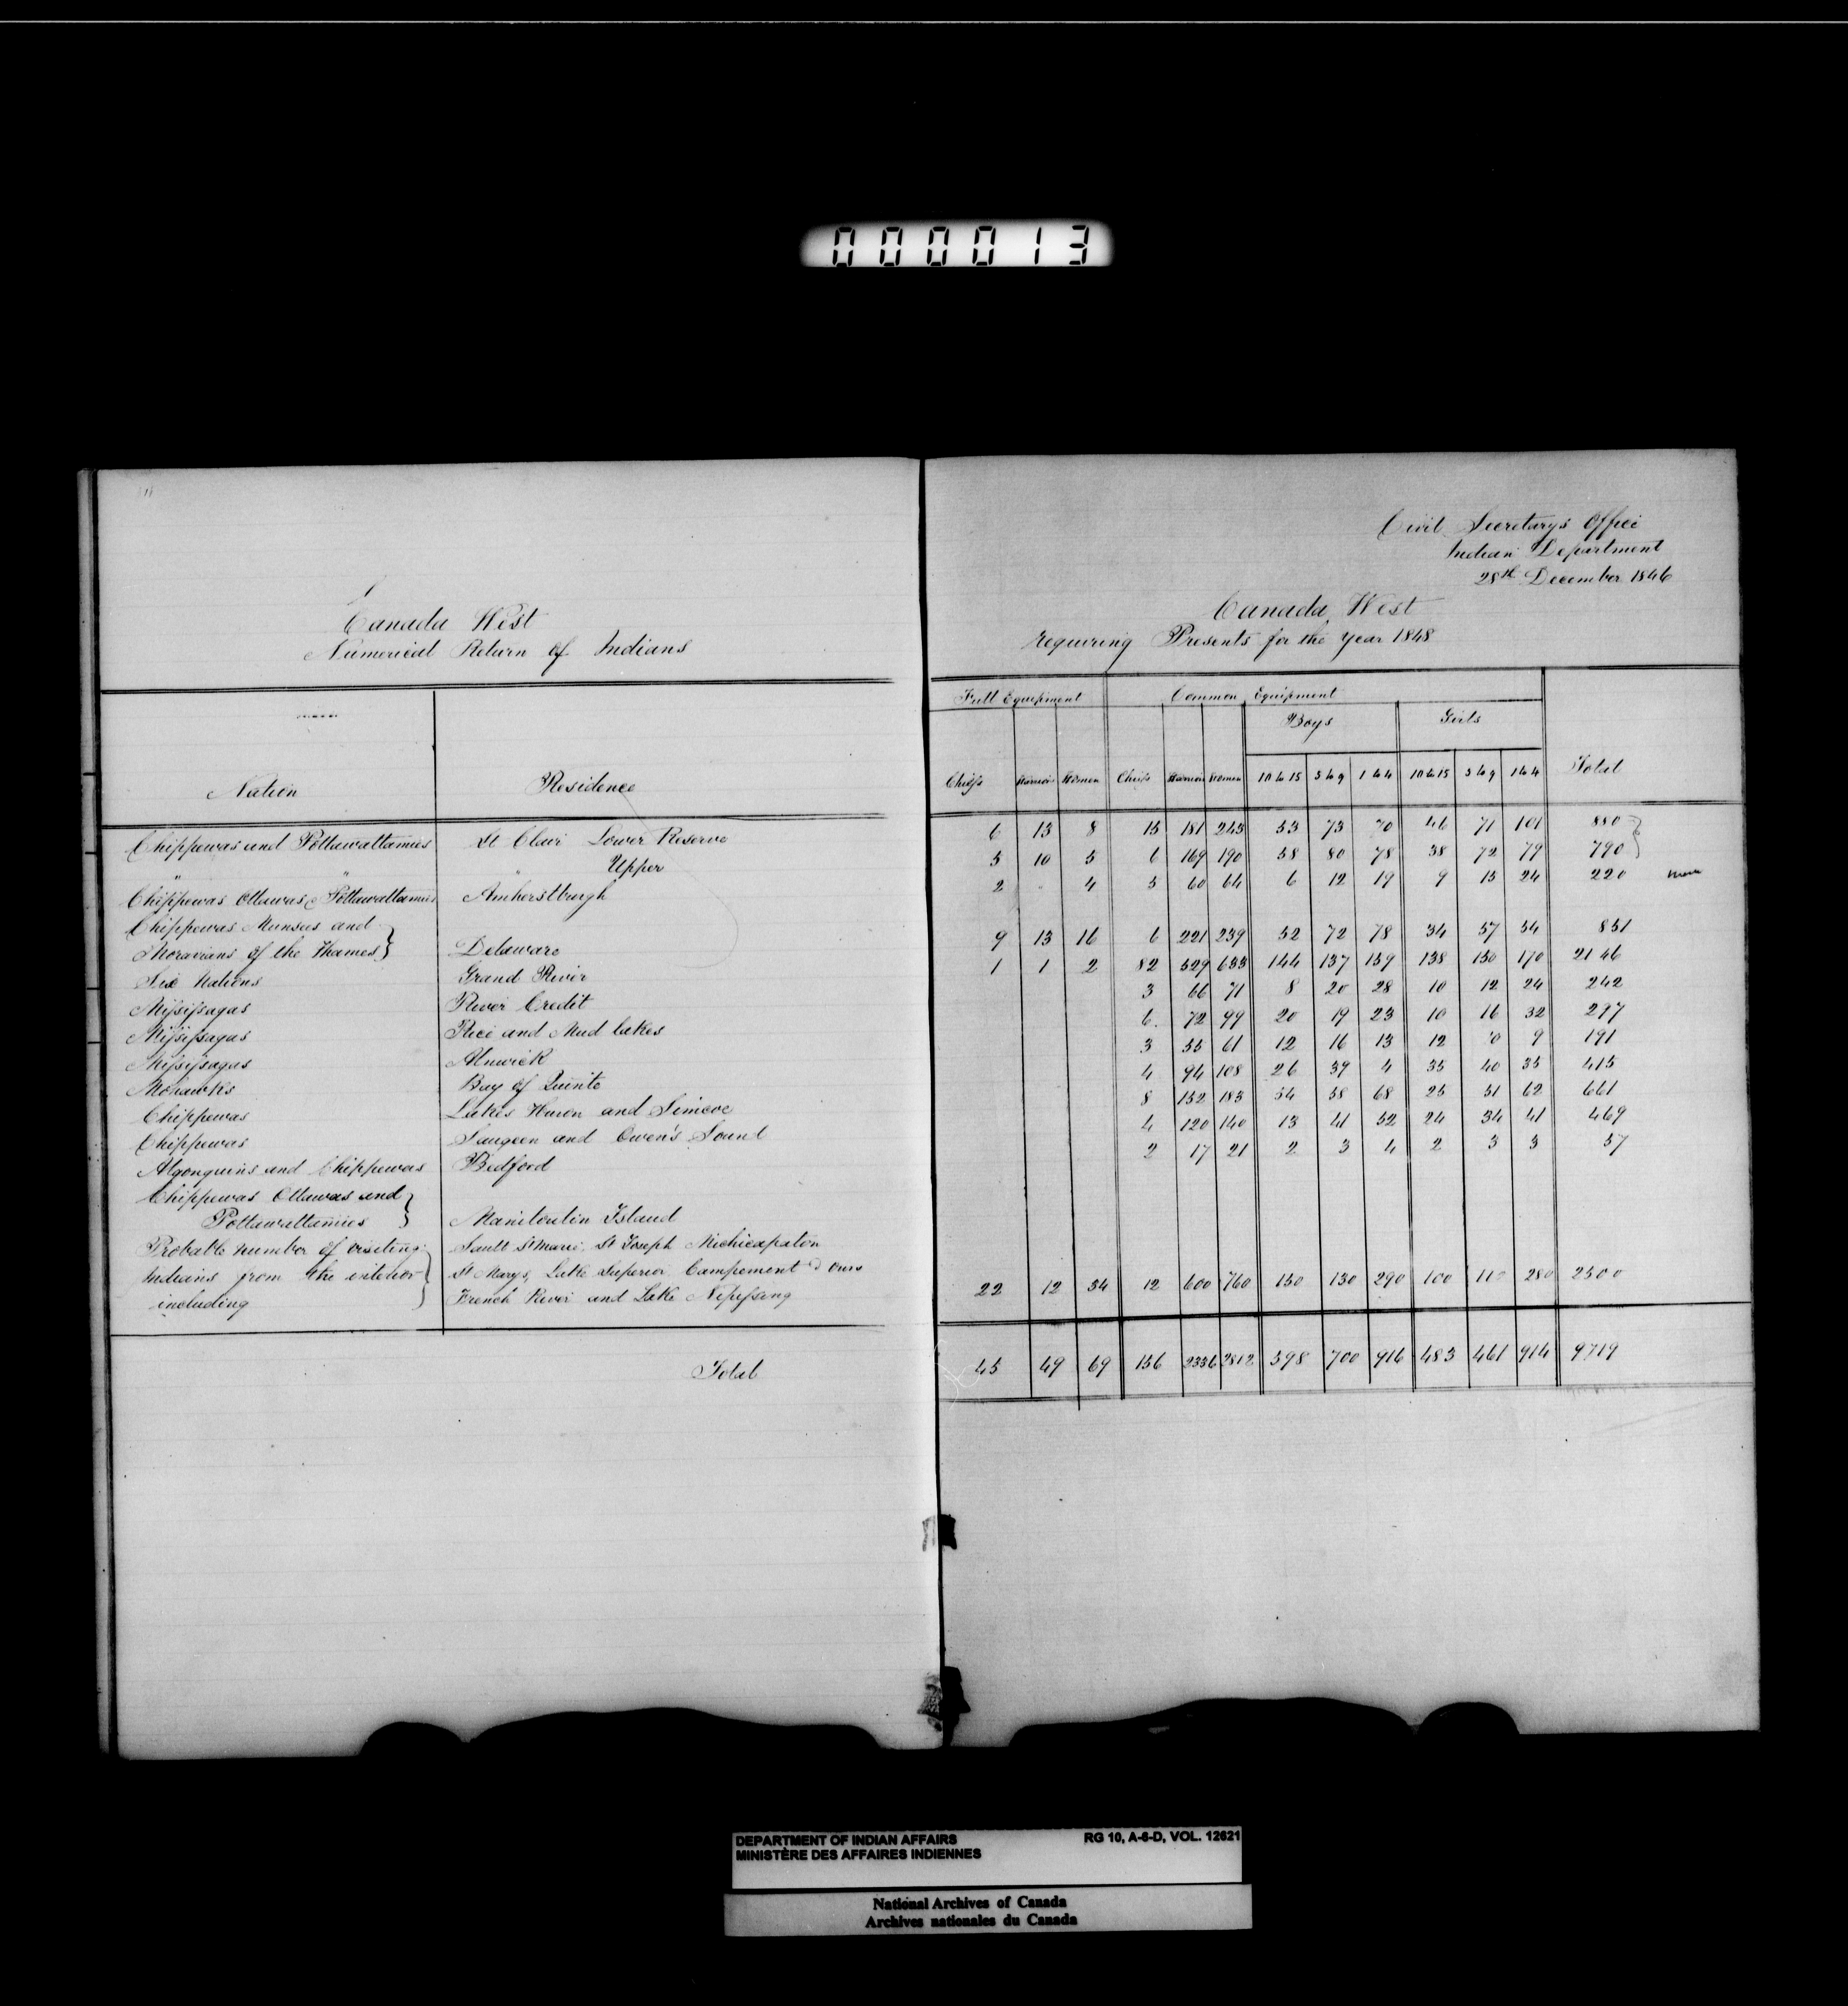 000013
Civil Secretarys Office
Indian Department
28th December 1846
Canada West
Numerical Return of Indians
Canada, West
requiring Presents for the year 1848
Nation Residence
Full Equipment Common Equipment
Boys Girls
Chiefs Warriors Women Chiefs Warriors Women 10 to 15 5 to 9 1 to 4 10 to 15 5 to 9 1 to 4 Total
Chippewas and Pottawattamies St Clair Lower Reserve 6 13 8 15 181 243 53 73 70 46 71 101 880
" " Upper 5 10 5 6 169 190 58 80 78 38 72 79 790
Chippewas Ottawas & Pottawattamies Amherstburgh 2 " 4 5 60 64 6 12 19 9 15 24 220
Chippewas Munsees and
Moravians of the Thames } Delaware 9 13 16 6 221 239 52 72 78 34 57 54 851
Six Nations Grand River 1 1 2 82 529 633 144 137 159 138 150 170 2146
Missisagas River Credit 3 66 71 8 20 28 10 12 24 242
Missisagas Rice and Mud lakes 6 72 99 20 19 23 10 16 32 297
Missisagas Alnwick 3 55 61 12 16 13 12 9 191
Mohawks Bay of Quinte 4 94 108 26 39 4 35 40 35 415
Chippewas Lakes Huron and Simcoe 8 152 183 54 58 68 25 51 62 661
Chippewas Saugeen and Owen's Sound 4 120 140 13 41 52 24 34 41 469
Algonquins and Chippewas Bedford 2 17 21 2 3 4 2 3 3 57
Chippewas Ottawas and
Pottawattamies } Manitoulin Island
Probable number of visiting Sault St Marie, St Joseph Michicapaton
Indians from the interior St Marys, Lake Superior, Campement d'ours
including French River and Lake Nipissing 22 12 34 12 600 760 150 130 290 100 110 280 2500
Total 45 49 69 156 2336 2812 598 700 916 483 461 914 9719
DEPARTMENT OF INDIAN AFFAIRS RG 10, A-6-D, VOL. 12621
MINISTÈRE DES AFFAIRES INDIENNES
National Archives of Canada
Archives nationales du Canada